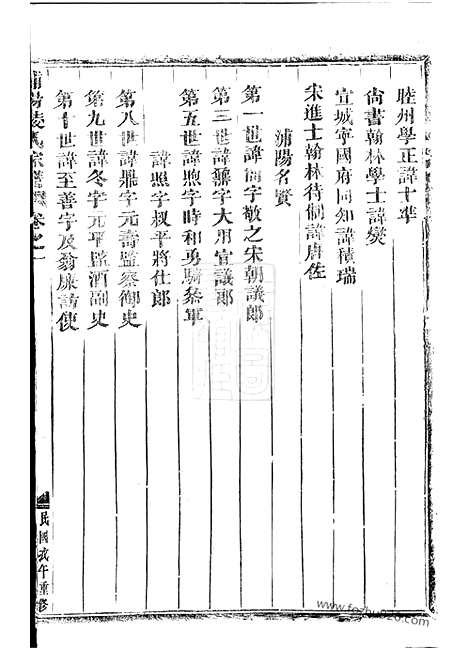 睦州學正諱十準
尙書翰林學士諱燮
宣城寧國府同知諱積瑞
宋進士翰林待制諱唐佐
浦陽名賢
第一世諱 字敬之宋朝議郎
第三世諱 字大用宣議郎
第五世諱煦字時和勇騎叅軍
諱照字叔平將仕郎
第八世諱鼎字元壽監察御史
第九世諱冬字元平監酒副史
第十世諱至善字及翁廉訪使
浦陽凌氏宗譜 卷之一
民國戊午重修